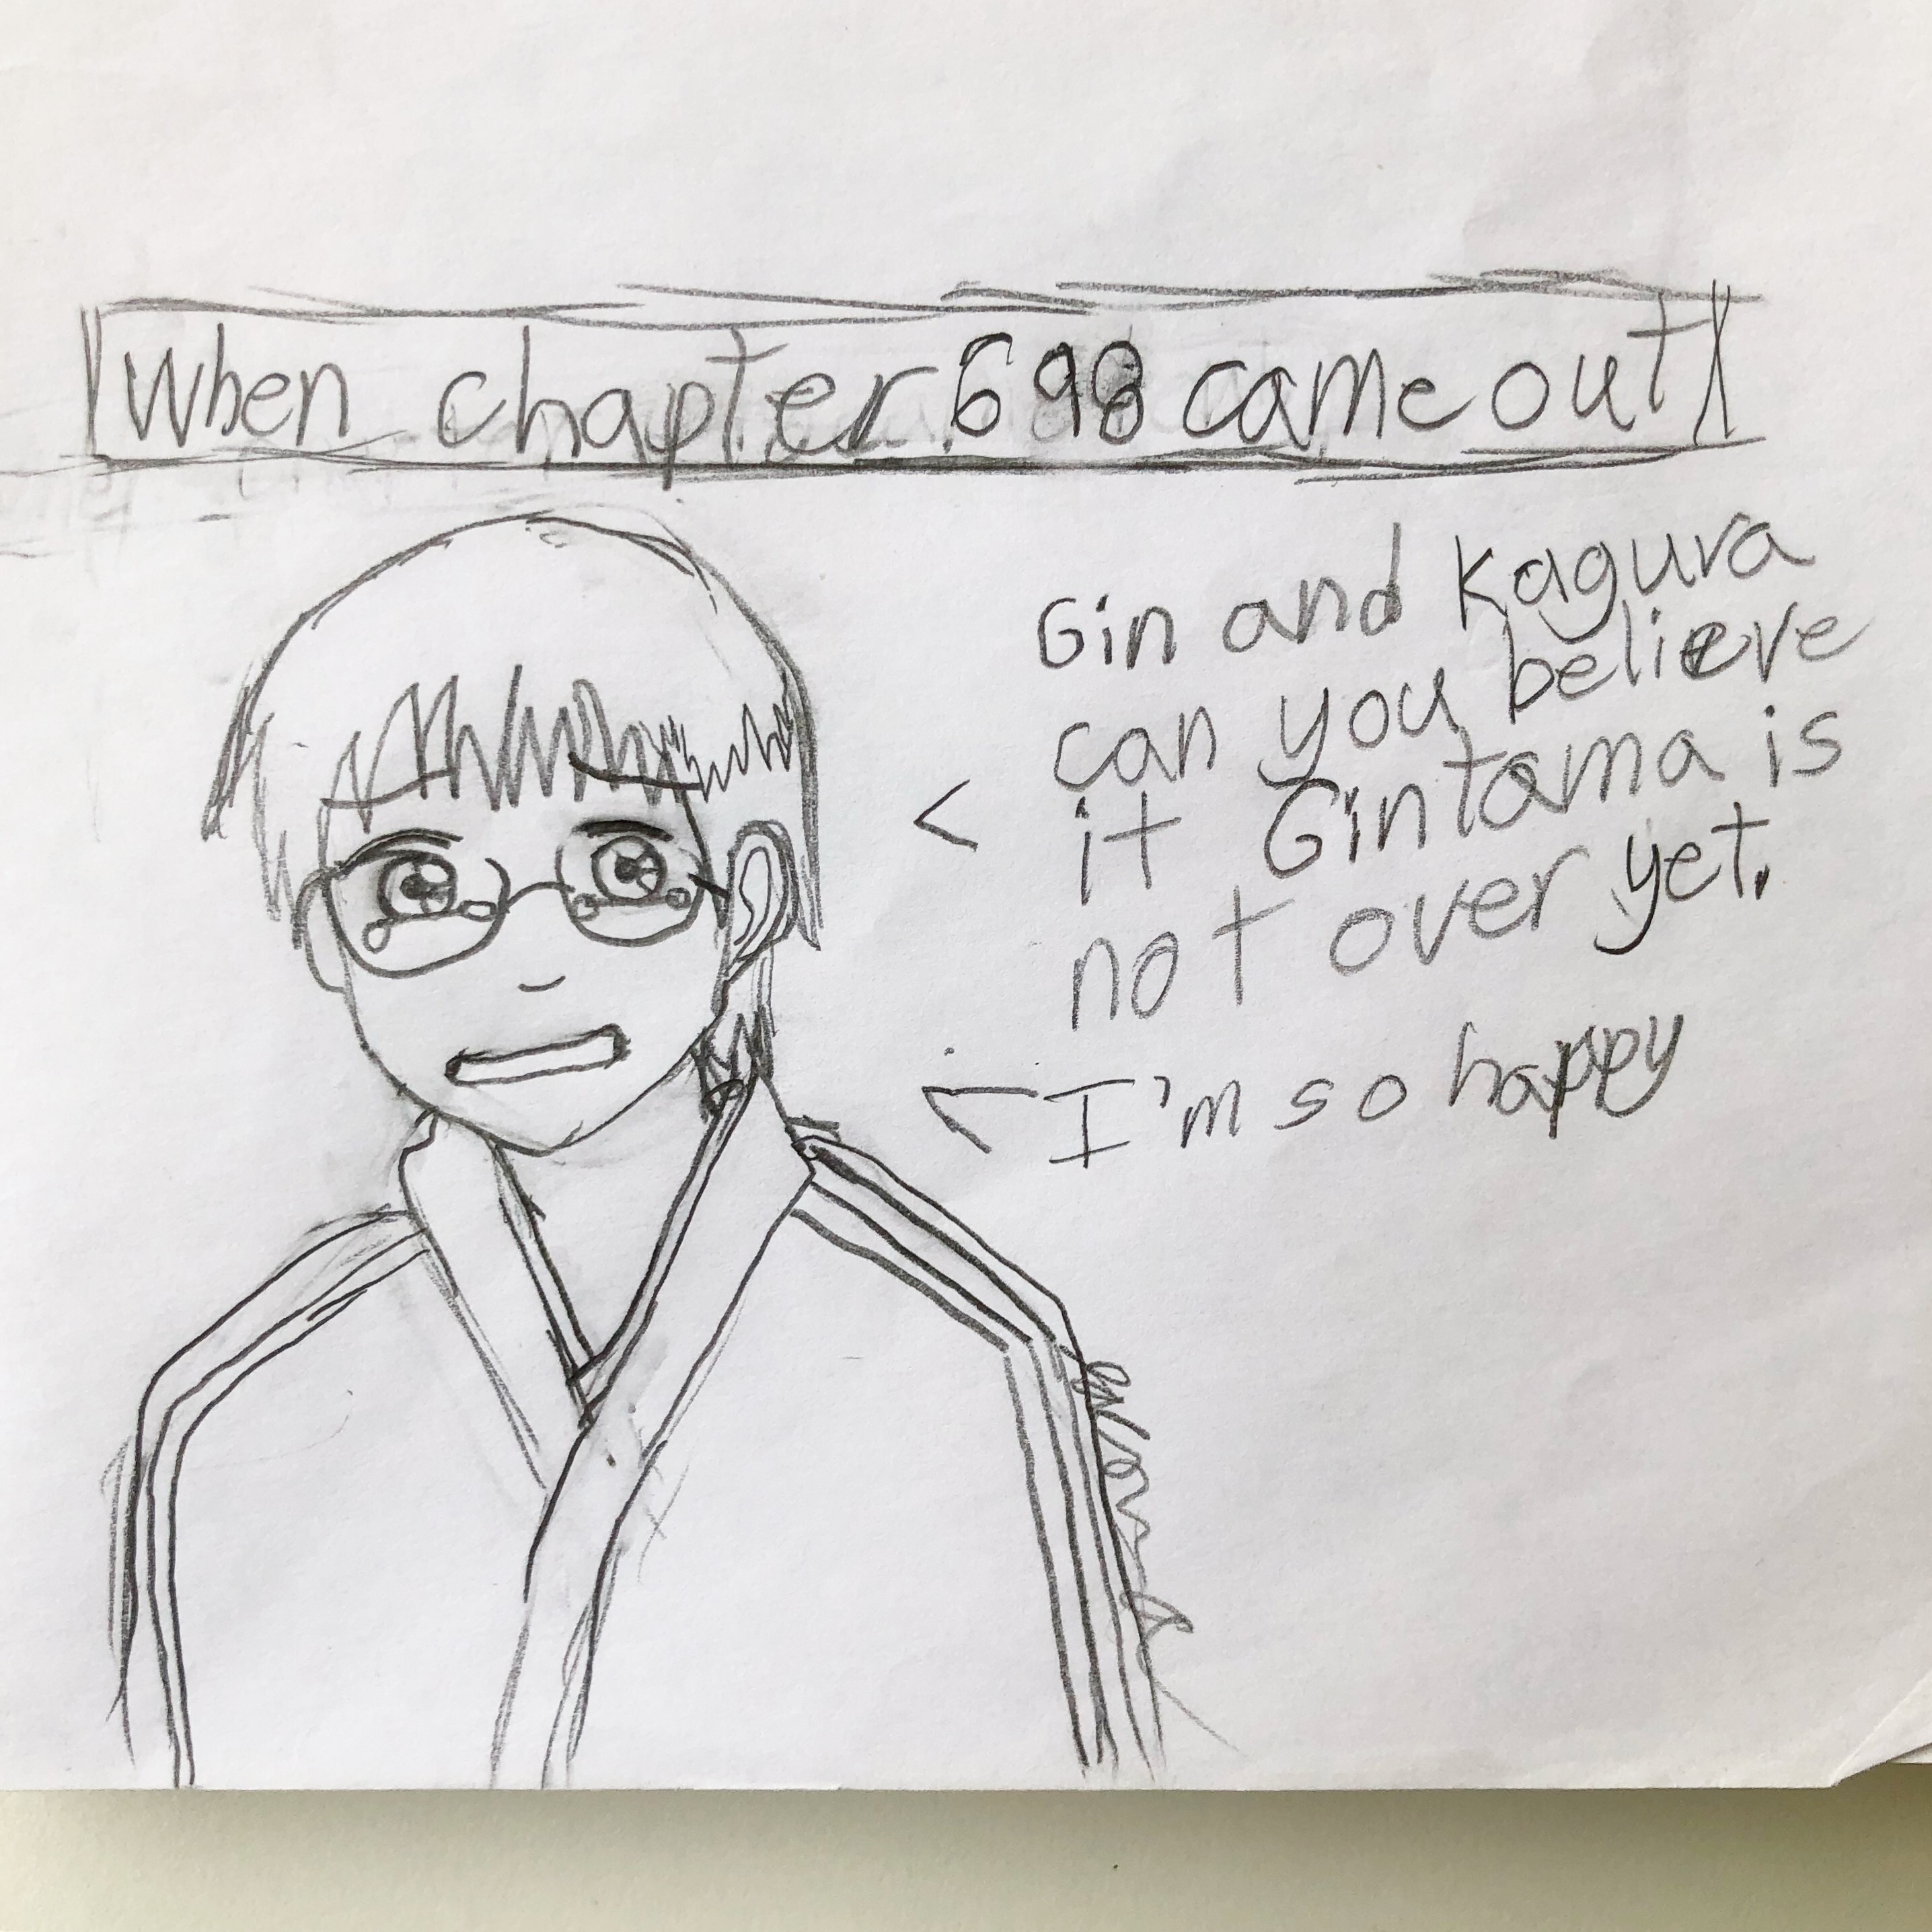 When chapter 698 came out
Gin and Kagura
can you believe
it Gintama is
not over yet.
I'm so happy